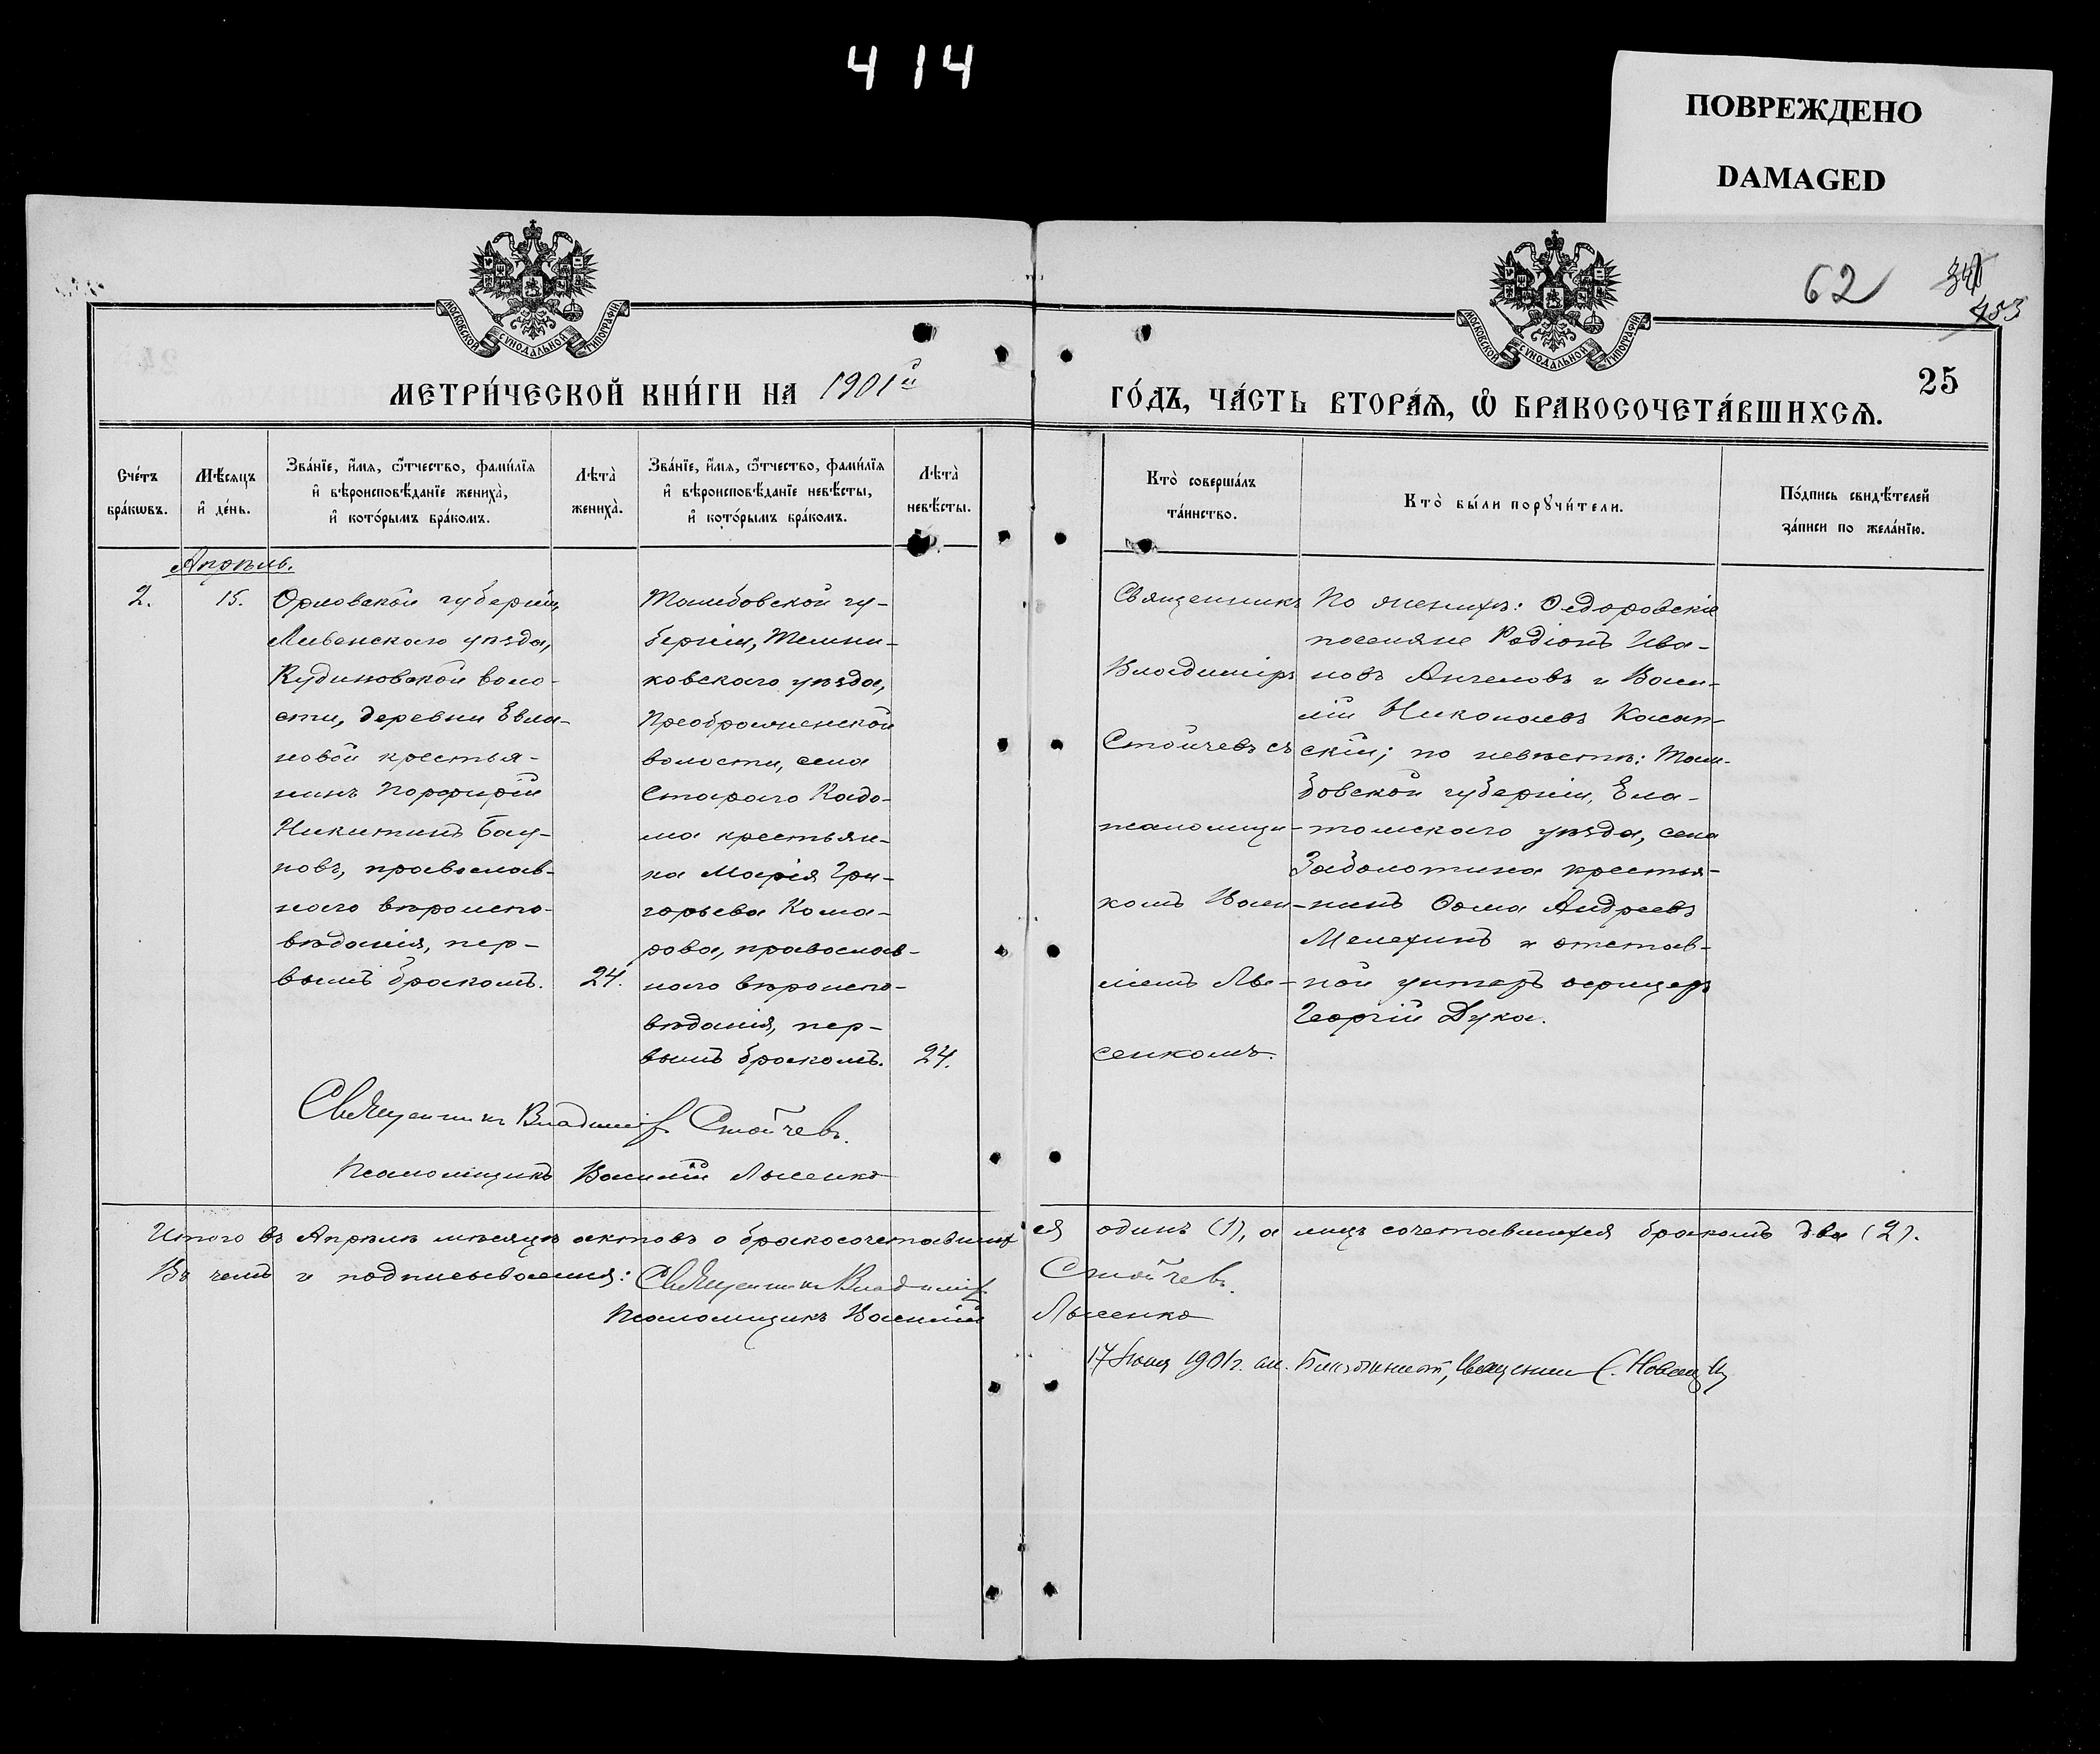 414
ПОВРЕЖДЕНО
DAMAGED
62
453
25
МОСКОВСКОЙ СѴНОДАЛЬНОЙ ТИПОГРАФІИ
МОСКОВСКОЙ СѴНОДАЛЬНОЙ ТИПОГРАФІИ
МЕТРИ́ЧЕСКОЙ КНИ́ГИ НА 1901й
ГО́ДЪ, ЧА́СТЬ ВТОРА́Ѧ, Ѽ БРАКОСОЧЕТА́ВШИХСѦ.
Сче́тъ
бра́кωвъ.
Мѣ́сяцъ
и҆ де́нь.
Зва́нїе, и҆́мѧ, ѻ҆́тчество, фами́лїѧ
и҆ вѣроисповѣ́данїе жениха̀,
и҆ кото́рымъ бра́комъ.
Лѣта̀
жениха̀.
Зва́нїе, и҆́мѧ, ѻ҆́тчество, фами́лїѧ
и҆ вѣроисповѣ́данїе невѣ́сты,
и҆ кото́рымъ бра́комъ.
Лѣта̀
невѣ́сты.
Кто̀ соверша́лъ
та́инство.
Кто̀ бы́ли порꙋчи́тели.
По́дпись свидѣ́телей
за́писи по жела́нїю.
Апрѣль.
2.
15.
Орловской губерніи,
Ливенскаго уѣзда,
Кудиновской воло-
сти, деревни Евла-
новой крестья-
нинъ Порфирій
Никитинъ Бау-
ковъ, православ-
наго вѣроиспо-
вѣданія, пер-
вымъ бракомъ.
24.
Тамбовской гу-
берніи, Темни-
ковскаго уѣзда,
Преображенской
волости, села
Стараго Кадо-
ма крестьян-
ка Марія Гри-
горьева Кома-
рова, православ-
наго вѣроиспо-
вѣданія, пер-
вымъ бракомъ.
24.
Священникъ
Владиміръ
Стойчевъ съ
псаломщи-
комъ Васи-
ліемъ Лы-
сенкомъ.
По женихѣ: Ѳедоровскіе
поселяне Родіонъ Ива-
новъ Ангеловъ и Васи-
лій Николаевъ Касап-
скій; по невѣстѣ: Там-
бовской губерніи, Ела-
томскаго уѣзда, села
Заболотина крестья-
нинъ Ѳома Андреевъ
Мелехинъ и отстав-
ной унтеръ офицеръ
Георгій Дука.
Священникъ Владимір Стойчевъ.
Псаломщикъ Василій Лысенко
Итого въ Апрѣлѣ мѣсяцѣ актовъ о бракосочетавшихся одинъ (1), а лицъ сочетавшихся бракомъ два (2).
Въ чемъ и подписываемся: Священникъ Владимір Стойчевъ.
Псаломщикъ Василій Лысенко
17 Іюня 1901 г. см. Благочинный, Священник С. Новац